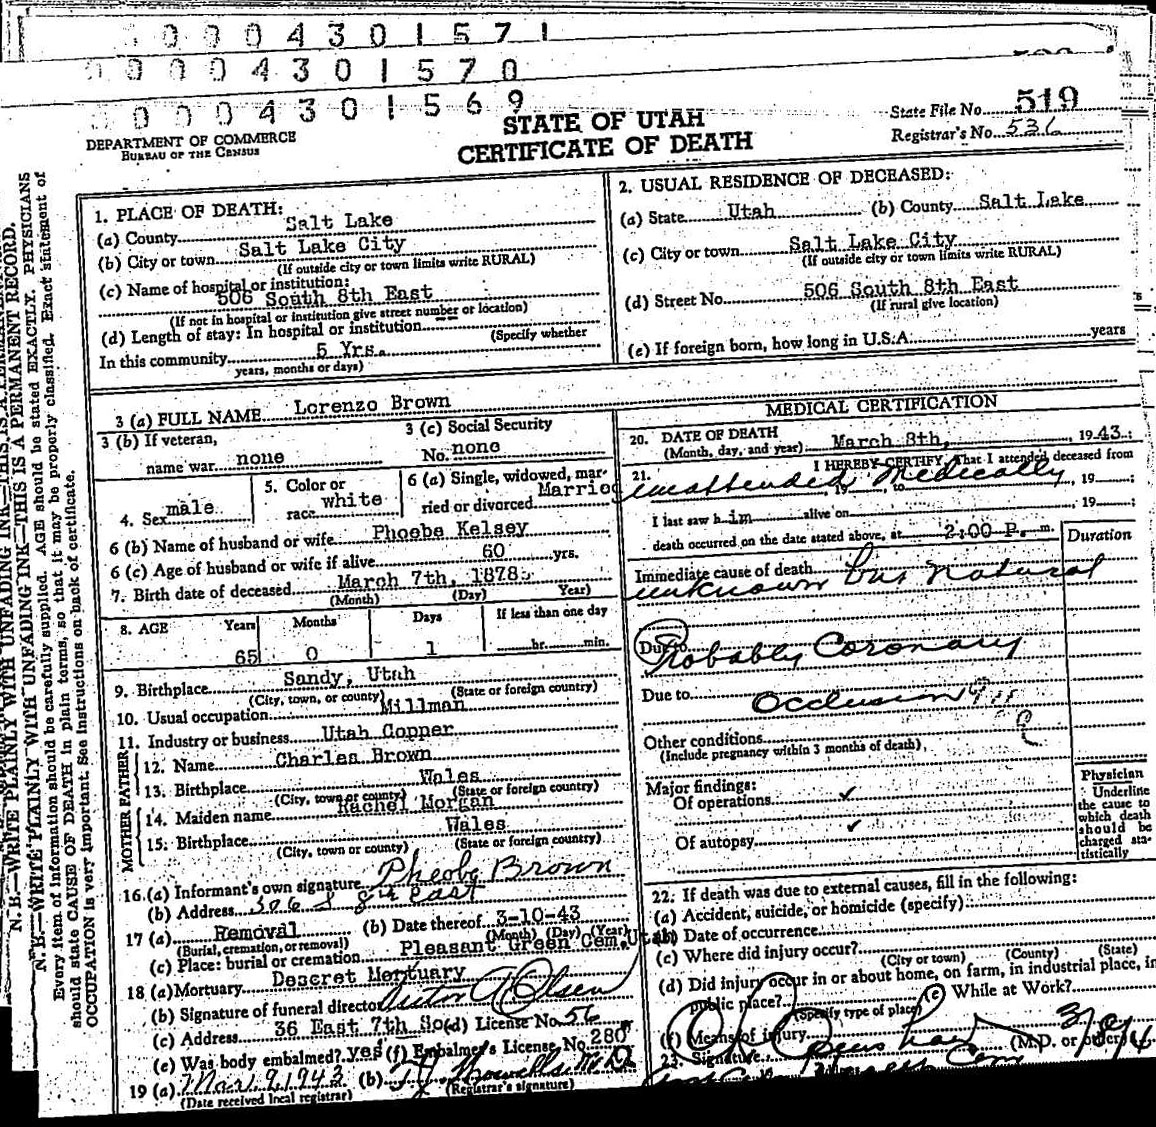 0 0 0 4 3 0 1 5 7 1
0 0 0 0 4 3 0 1 5 7 0
0 0 0 0 4 3 0 1 5 6 9
DEPARTMENT OF COMMERCE
BUREAU OF THE CENSUS
STATE OF UTAH
CERTIFICATE OF DEATH
State File No. 519
Registrar's No. 536
N. B.—WRITE PLAINLY WITH UNFADING INK—THIS IS A PERMANENT RECORD.
Every item of information should be carefully supplied. AGE should be stated EXACTLY. PHYSICIANS
should state CAUSE OF DEATH in plain terms, so that it may be properly classified. Exact statement of
OCCUPATION is very important. See instructions on back of certificate.
1. PLACE OF DEATH:
(a) County Salt Lake
(b) City or town Salt Lake City
(If outside city or town limits write RURAL)
(c) Name of hospital or institution:
506 South 8th East
(If not in hospital or institution give street number or location)
(d) Length of stay: In hospital or institution
(Specify whether
In this community 5 Yrs.
years, months or days)
2. USUAL RESIDENCE OF DECEASED:
(a) State Utah (b) County Salt Lake
(c) City or town Salt Lake City
(If outside city or town limits write RURAL)
(d) Street No. 506 South 8th East
(If rural give location)
(e) If foreign born, how long in U.S.A. years
3 (a) FULL NAME Lorenzo Brown
3 (b) If veteran,
name war none
3 (c) Social Security
No. none
4. Sex male
5. Color or
race white
6 (a) Single, widowed, mar-
ried or divorced Married
6 (b) Name of husband or wife Phoebe Kelsey
6 (c) Age of husband or wife if alive 60 yrs.
7. Birth date of deceased March 7th, 1878
(Month) (Day) Year)
8. AGE Years Months Days If less than one day
65 0 1 hr. min.
9. Birthplace Sandy, Utah
(City, town, or county) (State or foreign country)
10. Usual occupation Millman
11. Industry or business Utah Copper
FATHER
12. Name Charles Brown
13. Birthplace Wales
(City, town or county) (State or foreign country)
MOTHER
14. Maiden name Rachel Morgan
15. Birthplace Wales
(City, town or county) (State or foreign country)
16. (a) Informant's own signature Pheobe Brown
(b) Address 506 S 8th East
17 (a) Removal (b) Date thereof 3-10-43
(Burial, cremation, or removal) (Month) (Day) (Year)
(c) Place: burial or cremation Pleasant Green Cem. Utah
18 (a) Mortuary Deseret Mortuary
(b) Signature of funeral director Victor A Olsen
(c) Address 36 East 7th So. (d) License No. 56
(e) Was body embalmed? yes (f) Embalmer's License No. 280
19 (a) Mar. 9 1943 (b)
(Date received local registrar) (Registrar's signature)
MEDICAL CERTIFICATION
20. DATE OF DEATH
(Month, day, and year) March 8th, 1943
21. I HEREBY CERTIFY, That I attended deceased from
unattended Medically , 19 to , 19 ;
I last saw him alive on , 19 ;
death occurred on the date stated above, at 2:00 P. m.
Duration
Immediate cause of death
unknown but natural
Due to Probably Coronary
Due to Occlusion
Other conditions
(Include pregnancy within 3 months of death)
Major findings:
Of operations ✓
Of autopsy ✓
Physician
Underline
the cause to
which death
should be
charged sta-
tistically
22. If death was due to external causes, fill in the following:
(a) Accident, suicide, or homicide (specify)
(b) Date of occurrence
(c) Where did injury occur?
(City or town) (County) (State)
(d) Did injury occur in or about home, on farm, in industrial place, in
public place? (e) While at Work?
(Specify type of place)
(f) Means of injury
23. Signature (M.D. or other)